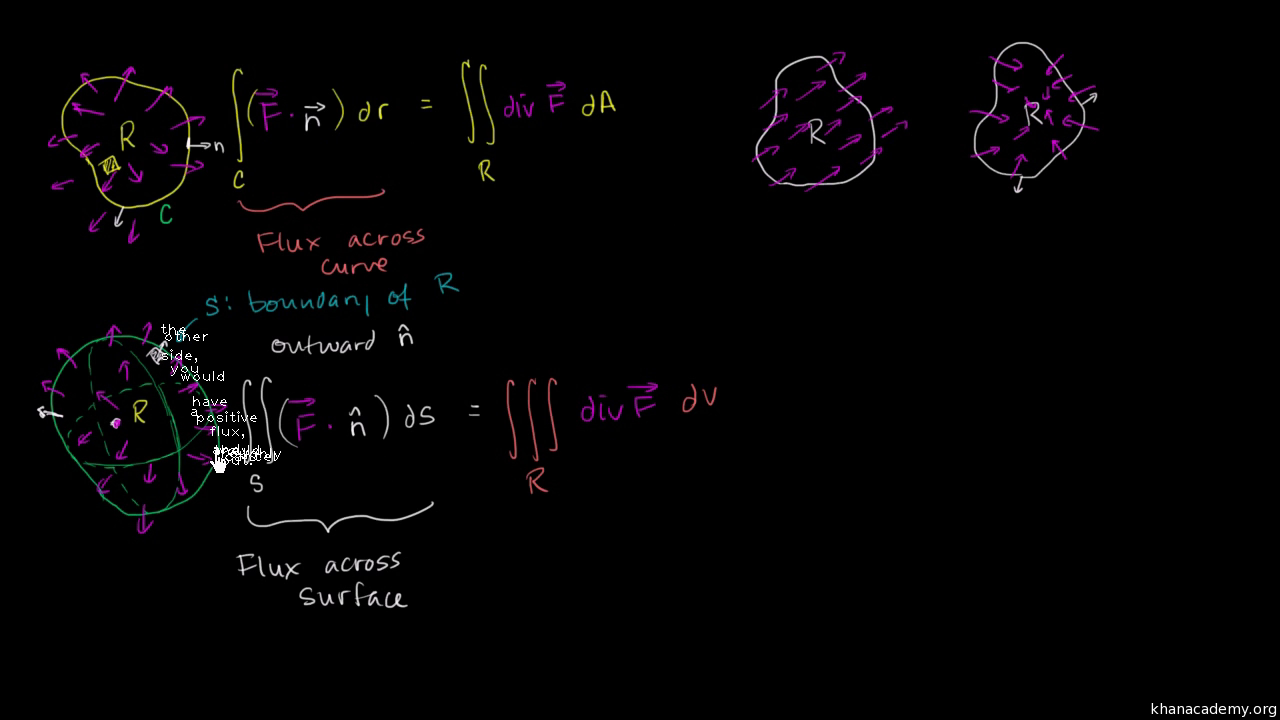 R
n
C
∫_C (F⃗ · n⃗) dr = ∬_R div F⃗ dA
Flux across
curve
R
R
S: boundary of R
outward n̂
the
other
side,
you
would
have
a
positive
flux,
R
∬_S (F⃗ · n̂) dS = ∭_R div F⃗ dV
Flux across
surface
khanacademy.org